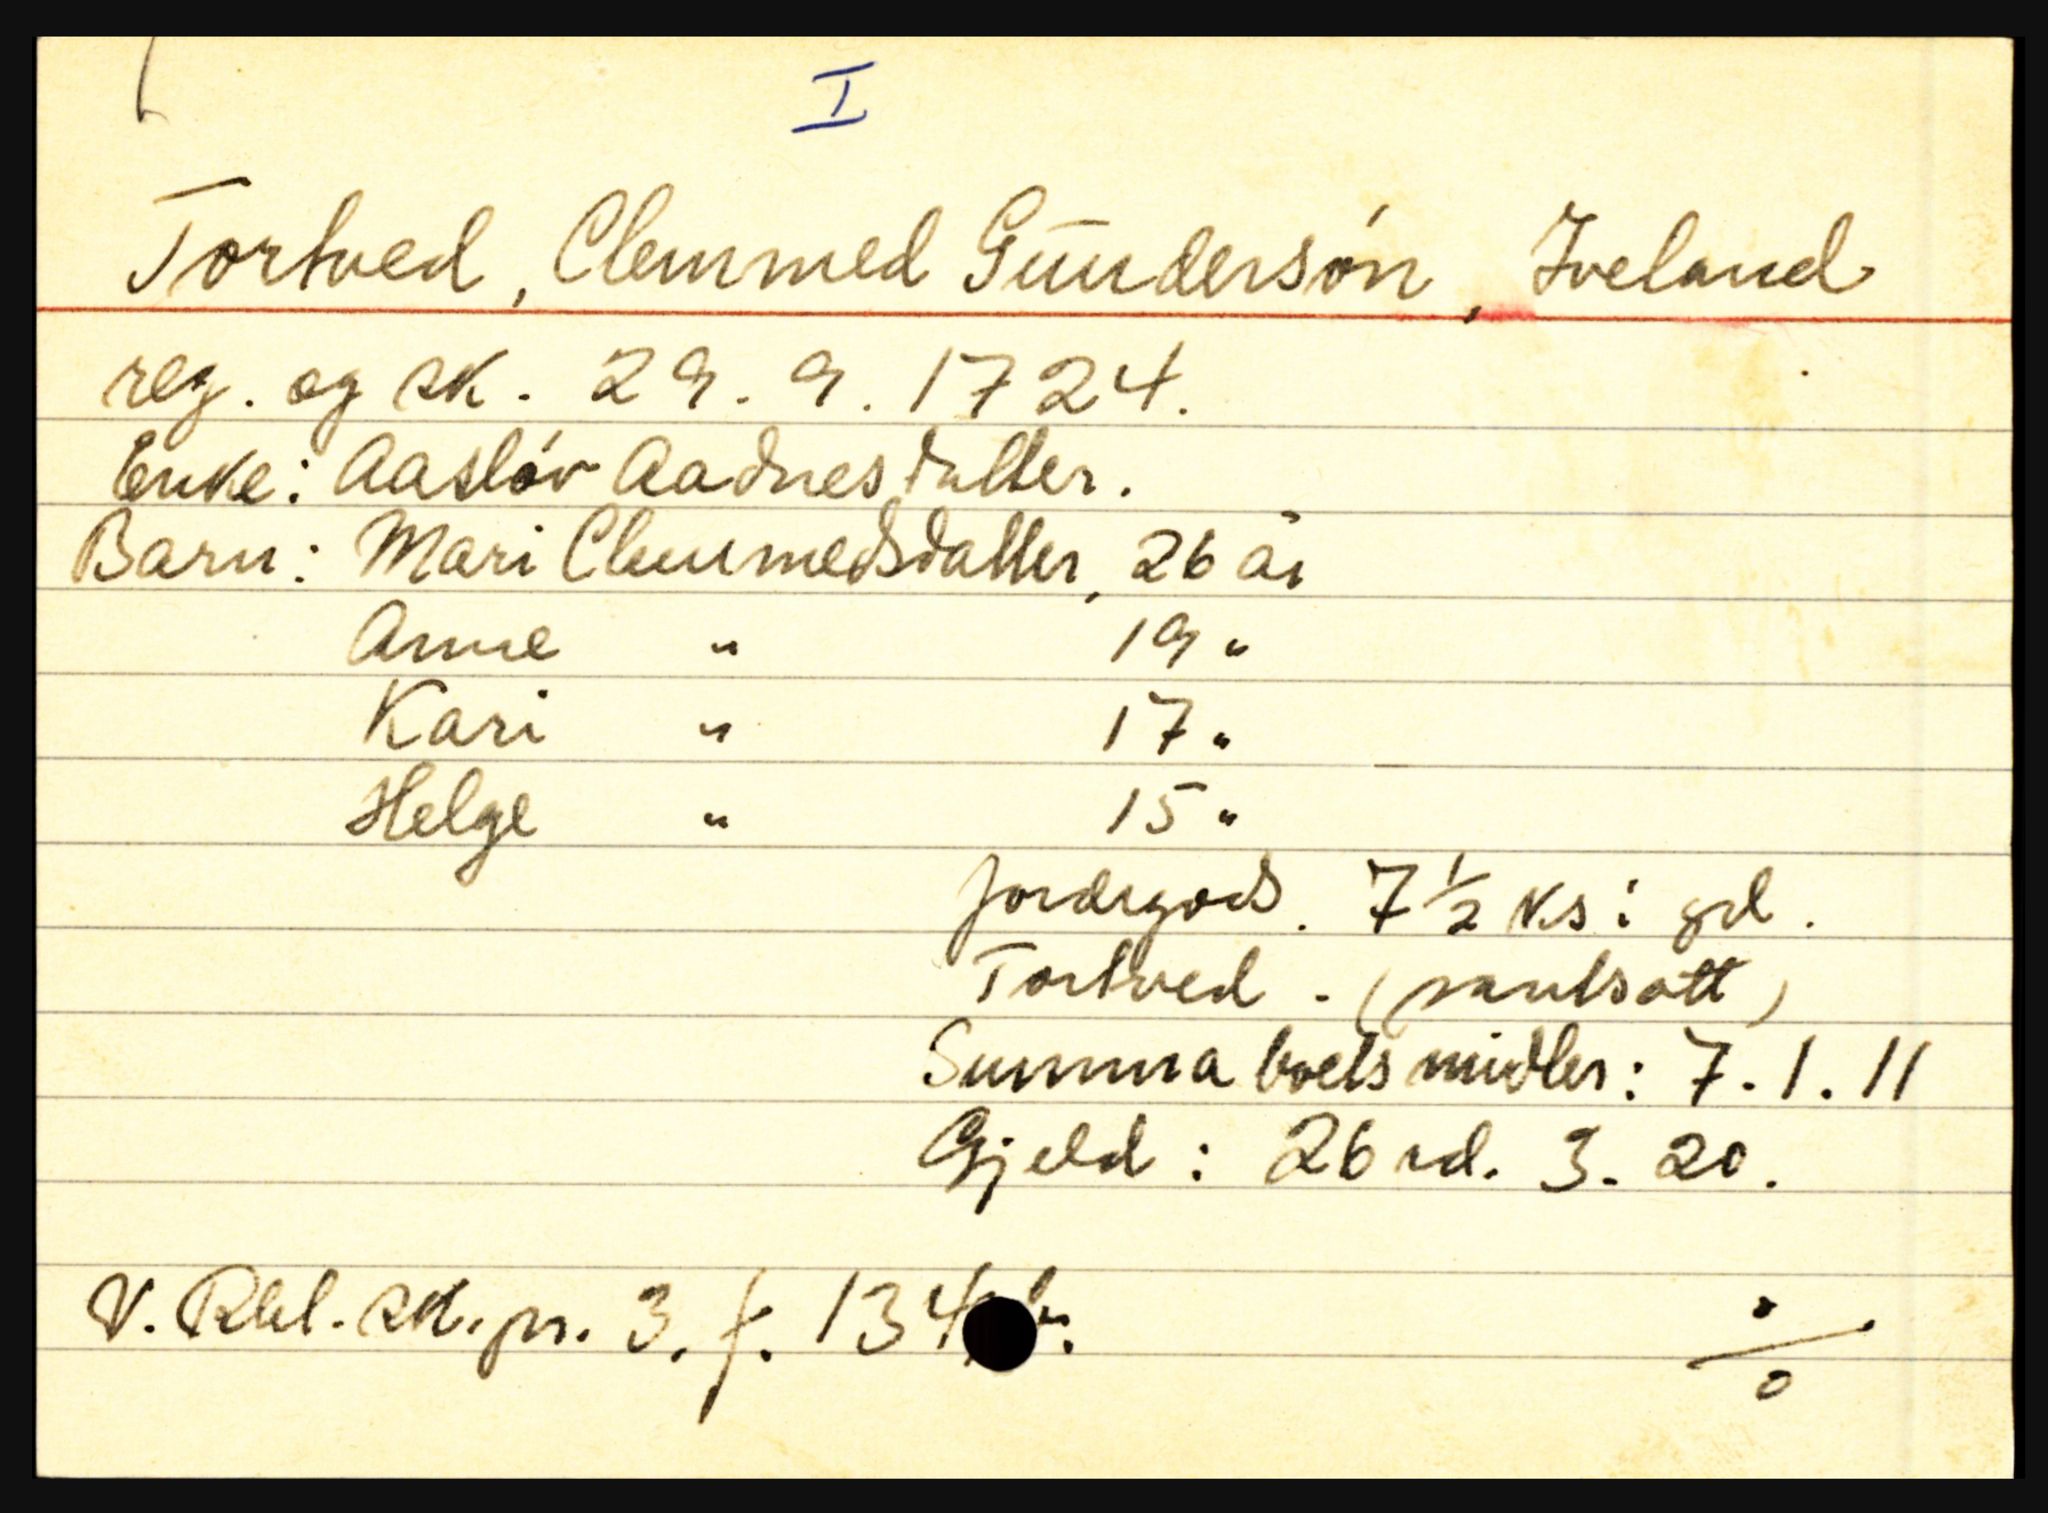 I
Tortved, Clemmed Gundersøn, Iveland
reg. og sk. 29. 9. 1724.
Enke: Aasløv Aadnesdatter.
Barn: Mari Clemmedsdatter, 26 år
Anne " 19 "
Kari " 17 "
Helge " 15 "
Jordegods. 7 1/2 ks i gd.
Tortved. (pantsatt)
Summa boets midler: 7. 1. 11
Gjeld: 26 rd. 3. 20.
V. Rbl. sk. pr. 3. f. 134